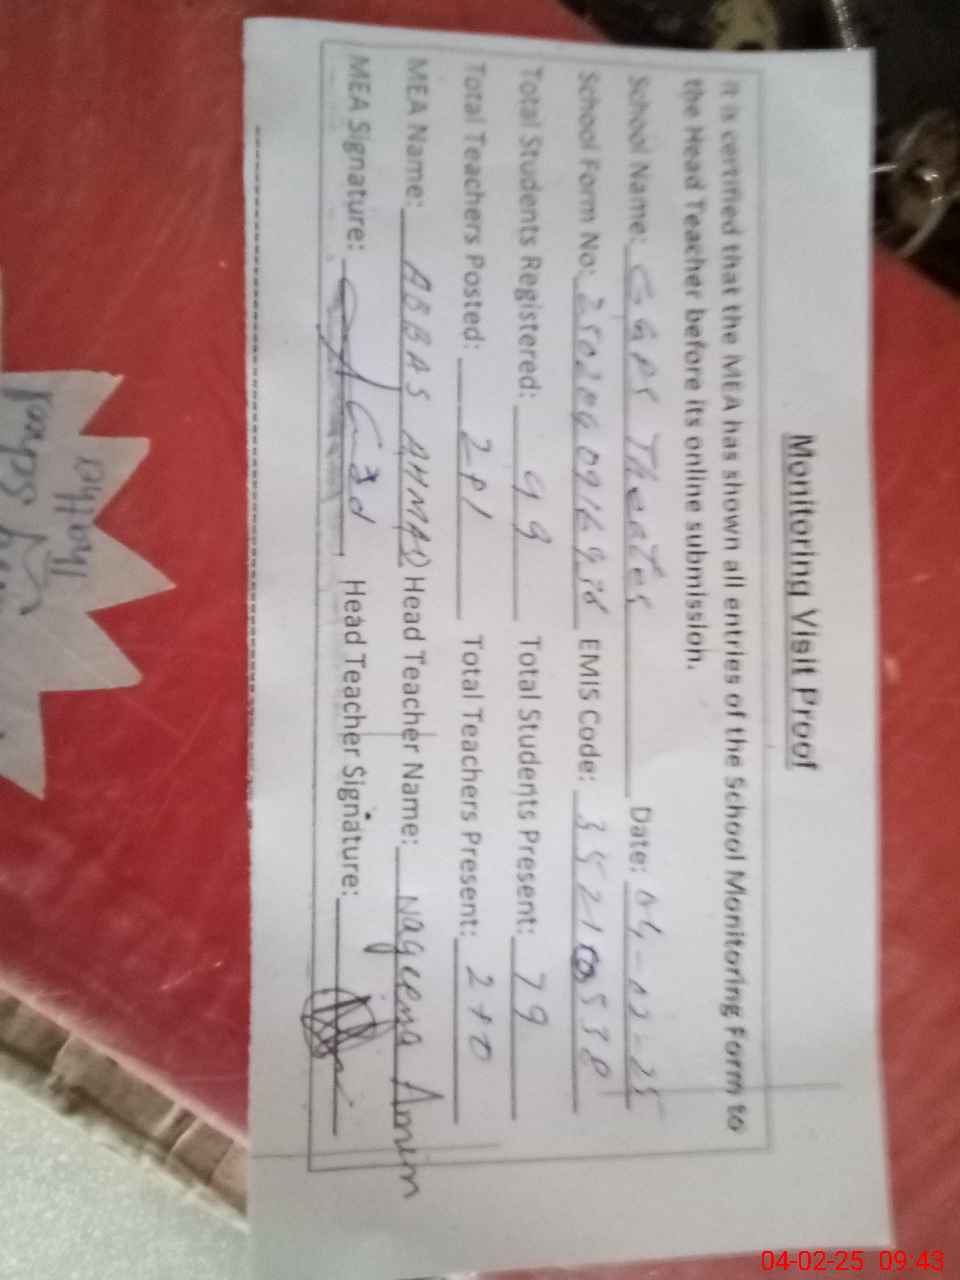 Monitoring Visit Proof
It is certified that the MEA has shown all entries of the School Monitoring Form to
the Head Teacher before its online submission.
School Name: GGPS Date: 04-02-25
School Form No: EMIS Code: 35210538
Total Students Registered: 99 Total Students Present: 79
Total Teachers Posted: 2+1 Total Teachers Present: 2+0
MEA Name: ABBAS AHMAD Head Teacher Name: Nageena Amin
MEA Signature: Head Teacher Signature:
04-02-25 09:43